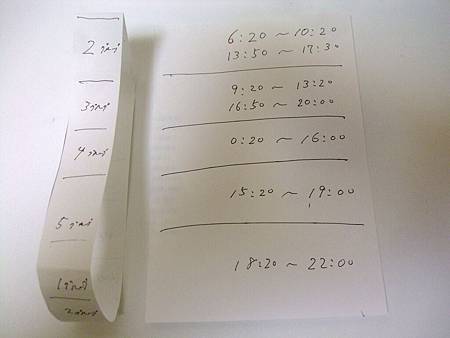 2
3
4
5
1
2
6:20 ~ 10:20
13:50 ~ 17:30
9:20 ~ 13:20
16:50 ~ 20:00
0:20 ~ 16:00
15:20 ~ 19:00
18:20 ~ 22:00